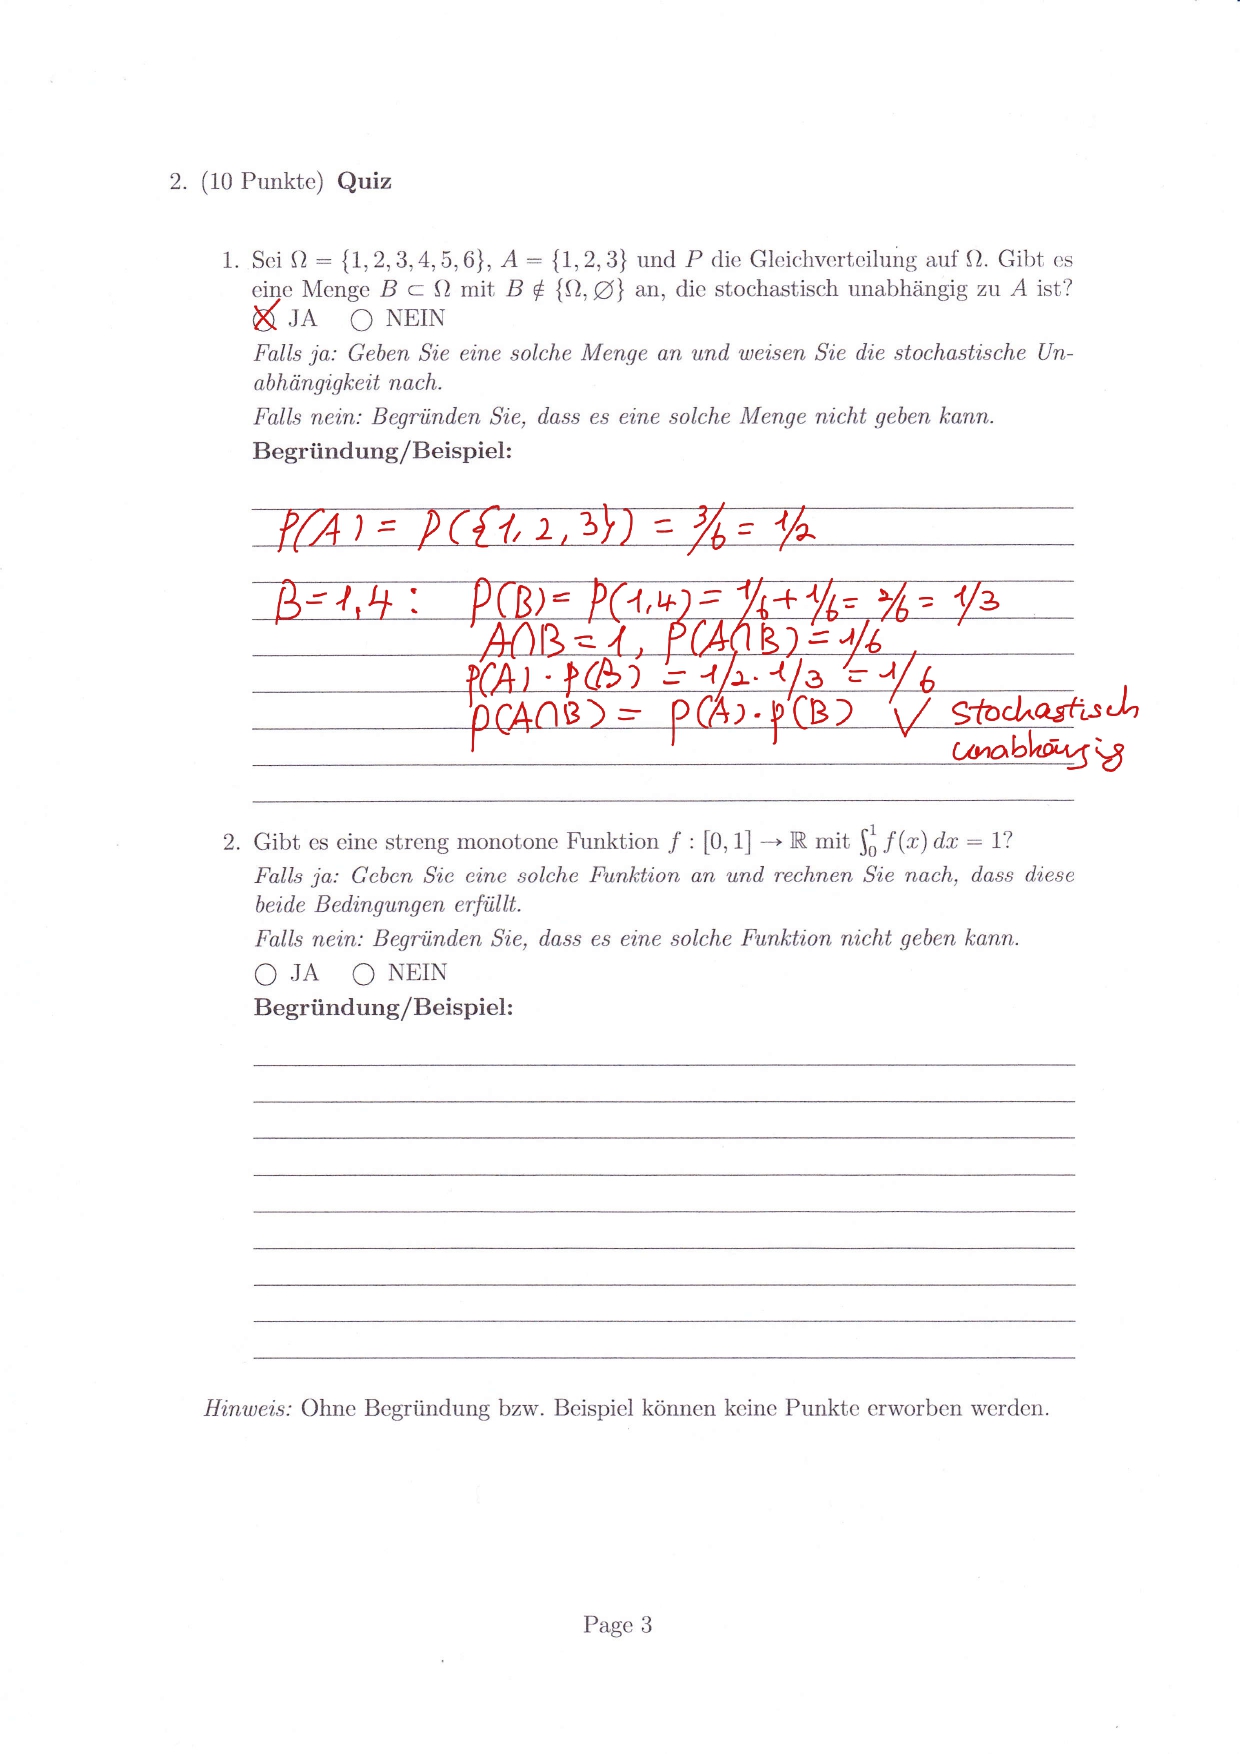 2. (10 Punkte) Quiz
1. Sei Ω = {1, 2, 3, 4, 5, 6}, A = {1, 2, 3} und P die Gleichverteilung auf Ω. Gibt es
eine Menge B ⊂ Ω mit B ∉ {Ω, ∅} an, die stochastisch unabhängig zu A ist?
⊗ JA ○ NEIN
Falls ja: Geben Sie eine solche Menge an und weisen Sie die stochastische Un-
abhängigkeit nach.
Falls nein: Begründen Sie, dass es eine solche Menge nicht geben kann.
Begründung/Beispiel:
P(A) = P({1, 2, 3}) = 3/6 = 1/2
B = 1,4 : P(B) = P(1,4) = 1/6 + 1/6 = 2/6 = 1/3
A∩B = 1, P(A∩B) = 1/6
P(A) · P(B) = 1/2 · 1/3 = 1/6
P(A∩B) = P(A) · P(B) ✓ stochastisch
unabhängig
2. Gibt es eine streng monotone Funktion f : [0, 1] → ℝ mit ∫₀¹ f(x) dx = 1?
Falls ja: Geben Sie eine solche Funktion an und rechnen Sie nach, dass diese
beide Bedingungen erfüllt.
Falls nein: Begründen Sie, dass es eine solche Funktion nicht geben kann.
○ JA ○ NEIN
Begründung/Beispiel:
Hinweis: Ohne Begründung bzw. Beispiel können keine Punkte erworben werden.
Page 3